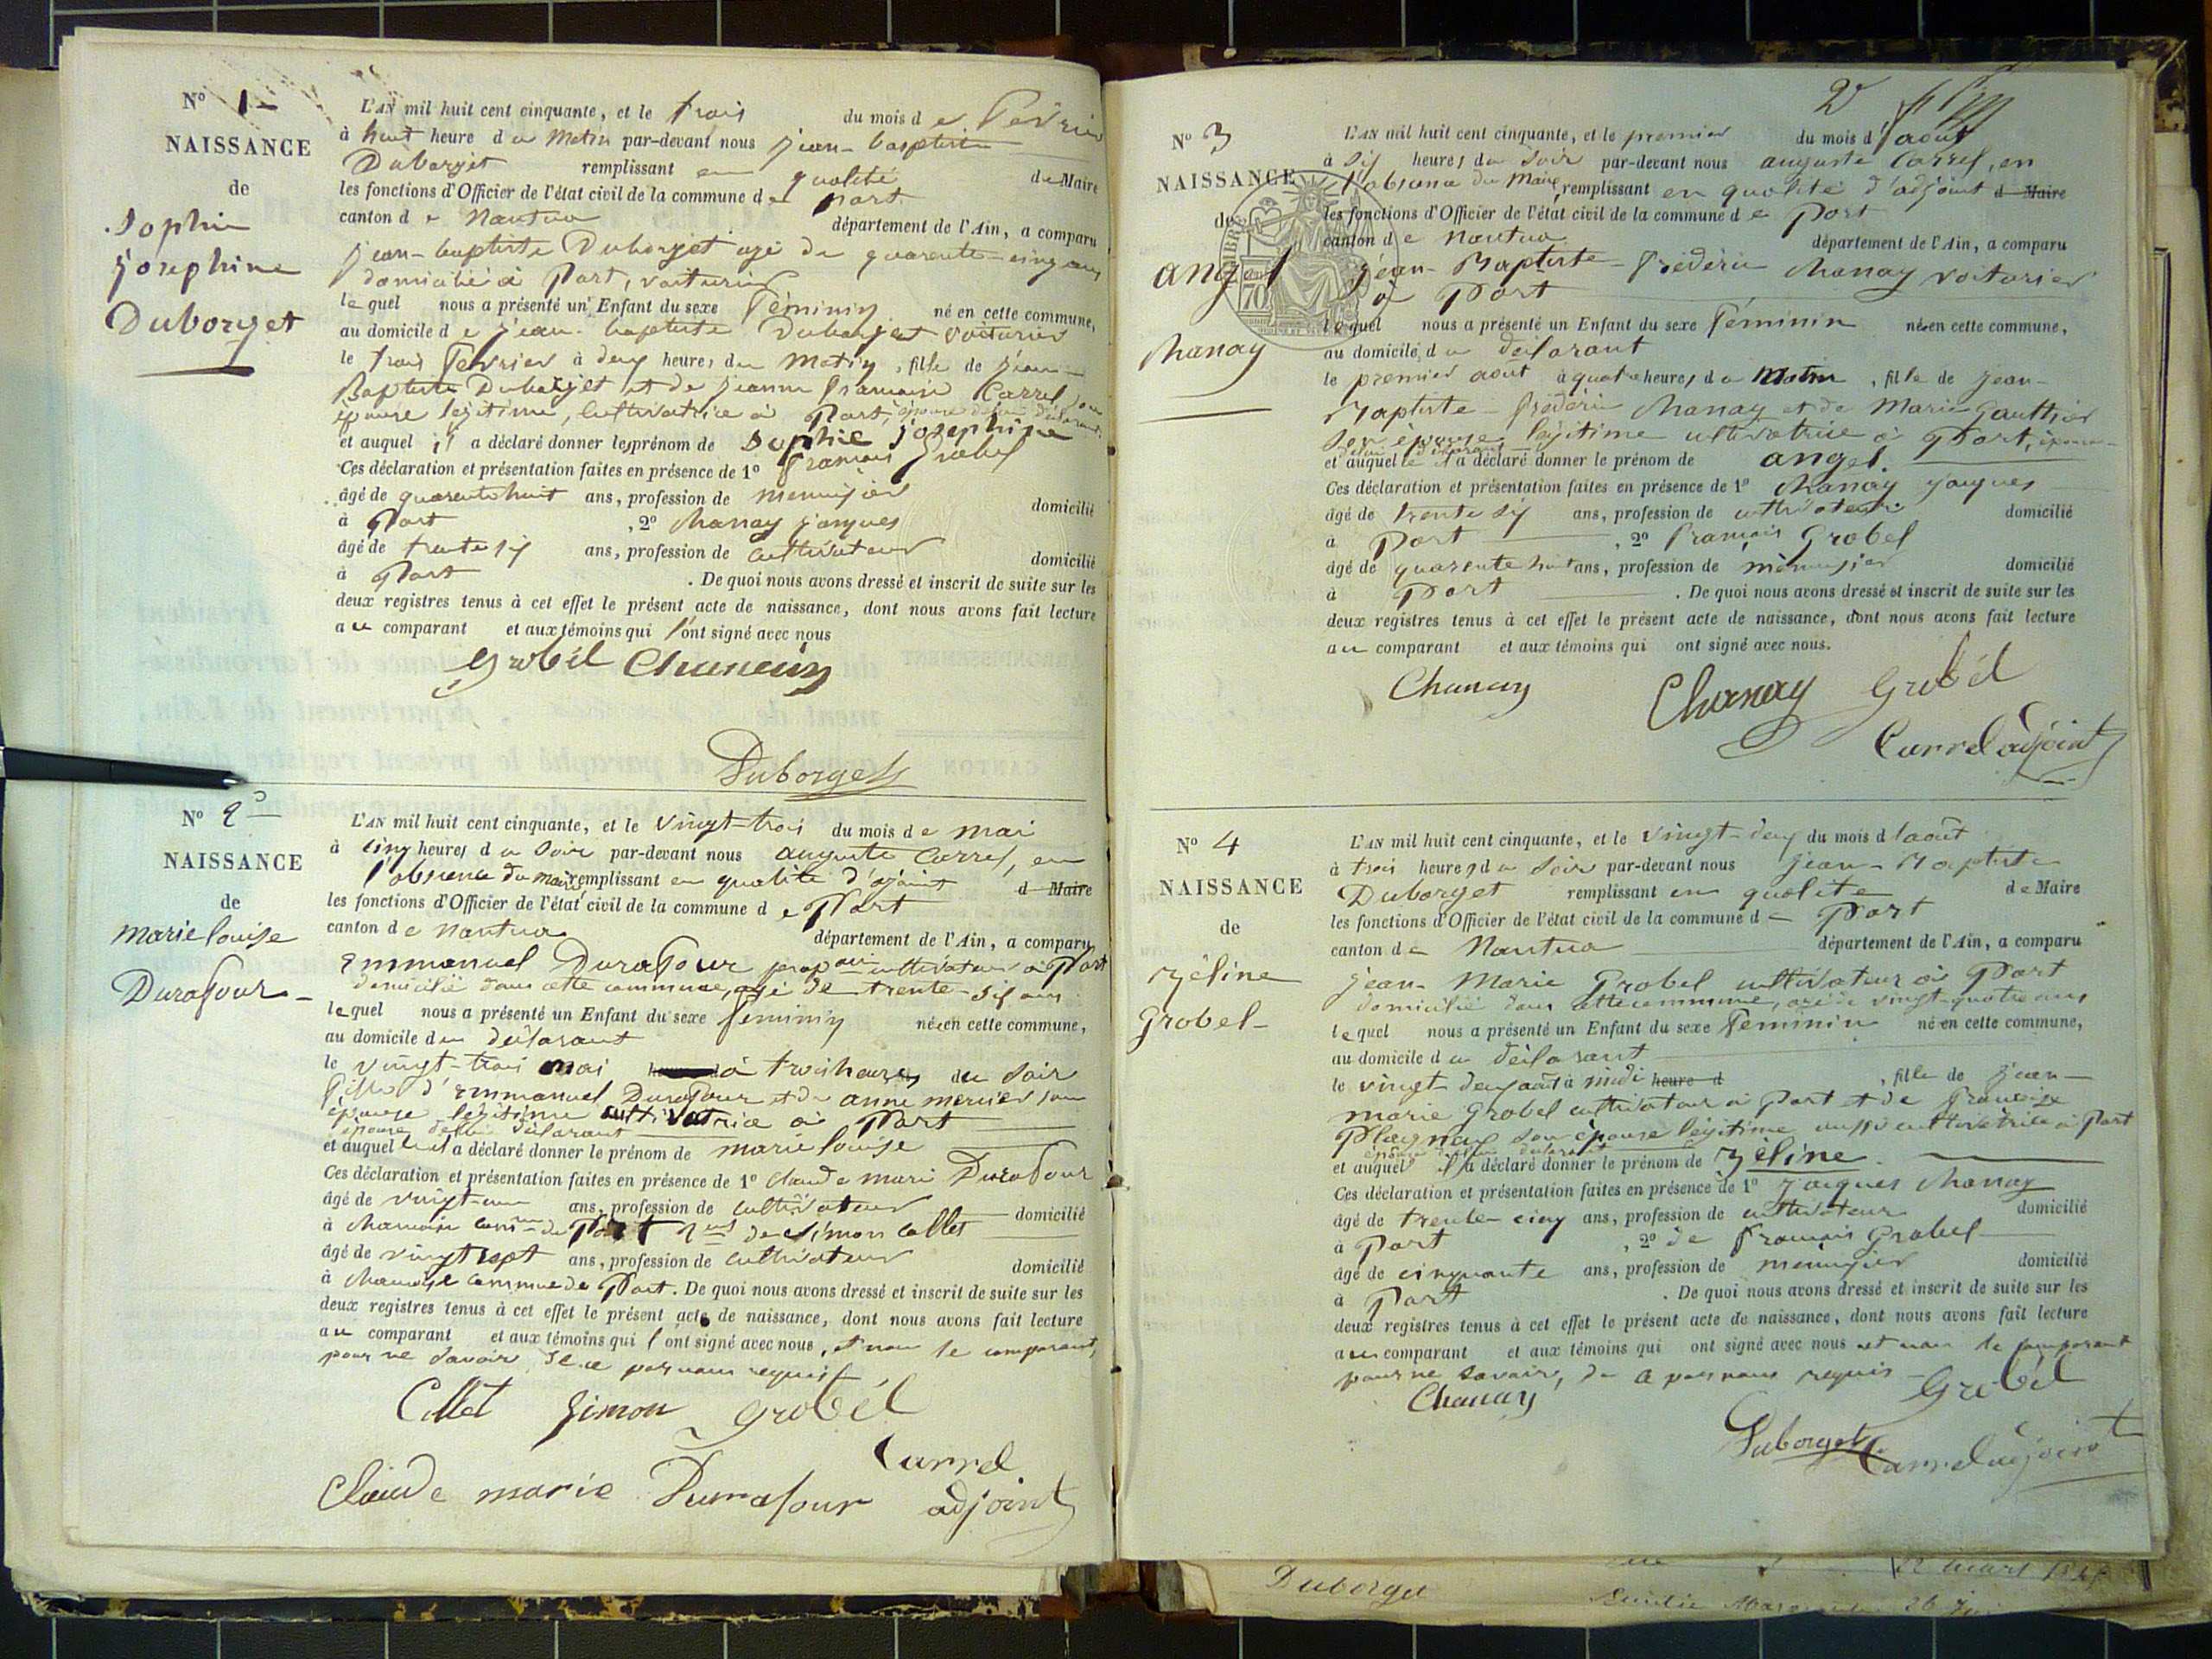 N° 1
NAISSANCE
de
Sophie
josephine
Duborget
L'AN mil huit cent cinquante, et le trois du mois de Février
à huit heure du Matin par-devant nous jean-baptiste
Duborget remplissant en qualité de Maire
les fonctions d'Officier de l'état civil de la commune de port
canton de Nantua département de l'Ain, a comparu
jean-baptiste Duborget agé de quarante-cinq ans
domicilié à Port, voiturier
lequel nous a présenté un Enfant du sexe Féminin né en cette commune,
au domicile de jean-baptiste Duborget voiturier
le trois Fevrier à deux heures du Matin, fille de jean-
Baptiste Duborget et de jeanne françoise Carrel son
épouse legitime, cultivatrice à Port, épouse dudit déclarant
et auquel il a déclaré donner les prénom de Sophie josephine
Ces déclaration et présentation faites en présence de 1° françois Grobel
âgé de quarente huit ans, profession de menuisier domicilié
à Port, 2° Chanay jacques
âgé de trente six ans, profession de cultivateur domicilié
à Port. De quoi nous avons dressé et inscrit de suite sur les
deux registres tenus à cet effet le présent acte de naissance, dont nous avons fait lecture
au comparant et aux témoins qui l'ont signé avec nous
Grobél Chanay
Duborget
N° 2
NAISSANCE
de
marie louise
Durafour
L'AN mil huit cent cinquante, et le vingt-trois du mois de mai
à cinq heures du soir par-devant nous auguste Carrel, en
l'absence du maire remplissant en qualité d'ajoint d Maire
les fonctions d'Officier de l'état civil de la commune de Port
canton de nantua département de l'Ain, a comparu
Emmanuel Durafour cultivateur à Port
domicilié dans cette commune, agé de trente-six ans
lequel nous a présenté un Enfant du sexe feminin né en cette commune,
au domicile du déclarant
le vingt-trois mai à trois heures du soir
fille d'Emmanuel Durafour et de anne mercier son
épouse légitime cultivatrice à Port
épouse dudit déclarant
et auquel il a déclaré donner le prénom de marie louise
Ces déclaration et présentation faites en présence de 1° claude marie Durafour
âgé de vingt-un ans, profession de cultivateur domicilié
à de Port de Simon Collet
âgé de vingt sept ans, profession de cultivateur domicilié
à commune de Port. De quoi nous avons dressé et inscrit de suite sur les
deux registres tenus à cet effet le présent acte de naissance, dont nous avons fait lecture
au comparant et aux témoins qui l'ont signé avec nous, et non le comparant,
pour ne savoir, de ce par nous requis
Collet Simon Grobél
Carrel
Claude marie Durafour adjoint
2
N° 3
NAISSANCE
de
angel
Chanay
TIMBRE
70
L'AN mil huit cent cinquante, et le premier du mois d'aout
à six heures du soir par-devant nous auguste Carrel, en
l'absence du Maire remplissant en qualité d'adjoint d Maire
les fonctions d'Officier de l'état civil de la commune de Port
canton de nantua département de l'Ain, a comparu
jean-Baptiste-fréderic Chanay voiturier
à Port
lequel nous a présenté un Enfant du sexe Féminin né en cette commune,
au domicile du déclarant
le premier aout à quatre heures du Matin, fille de jean-
Baptiste-fréderic Chanay et de Marie Gauthier
son épouse légitime cultivatrice à Port, épouse
dudit déclarant
et auquel il a déclaré donner le prénom de angel.
Ces déclaration et présentation faites en présence de 1° Chanay jacques
âgé de trente six ans, profession de cultivateur domicilié
à Port, 2° françois Grobel
âgé de quarente huit ans, profession de ménuisier domicilié
à Port. De quoi nous avons dressé et inscrit de suite sur les
deux registres tenus à cet effet le présent acte de naissance, dont nous avons fait lecture
au comparant et aux témoins qui ont signé avec nous.
Chanay Chanay Grobél
Carrel adjoint
N° 4
NAISSANCE
de
Zéline
Grobel
L'AN mil huit cent cinquante, et le vingt-deux du mois d'août
à trois heures du soir par-devant nous jean-Baptiste
Duborget remplissant en qualité de Maire
les fonctions d'Officier de l'état civil de la commune de Port
canton de Nantua département de l'Ain, a comparu
jean-Marie Grobel cultivateur à Port
domicilié dans cette commune, agé de vingt-quatre ans
lequel nous a présenté un Enfant du sexe Feminin né en cette commune,
au domicile du déclarant
le vingt deux août à midi heure d, fille de jean-
marie Grobel cultivateur à Port et de françoise
son épouse legitime aussi cultivatrice à Port
épouse dudit déclarant
et auquel il a déclaré donner le prénom de Zéline.
Ces déclaration et présentation faites en présence de 1° jacques Chanay
âgé de trente-cinq ans, profession de cultivateur domicilié
à Port, 2° de françois Grobel
âgé de cinquante ans, profession de menuisier domicilié
à Port. De quoi nous avons dressé et inscrit de suite sur les
deux registres tenus à cet effet le présent acte de naissance, dont nous avons fait lecture
au comparant et aux témoins qui ont signé avec nous et non le comparant
pour ne savoir, de ce par nous requis
Chanay Grobél
Duborget Carrel adjoint
Duborget